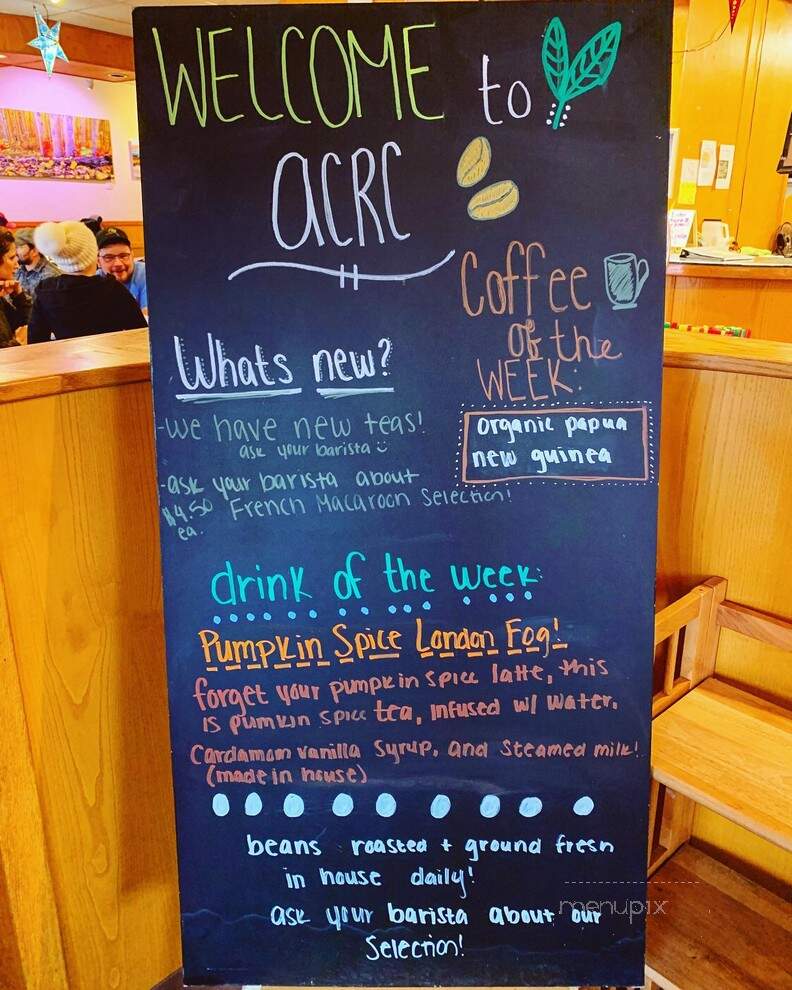 WELCOME to
ACRC
Coffee
of the
WEEK:
organic papua
new guinea
Whats new?
-we have new teas!
ask your barista
-ask your barista about
$4.50 ea. French Macaroon Selection!
drink of the week:
Pumpkin Spice London Fog!
forget your pumpkin spice latte, this
is pumkin spice tea, infused w/ water,
Cardamom vanilla Syrup, and Steamed milk!
(made in house)
beans roasted + ground fresh
in house daily!
ask your barista about our
Selection!
menupix